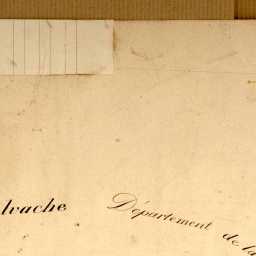 lvache
Département de la